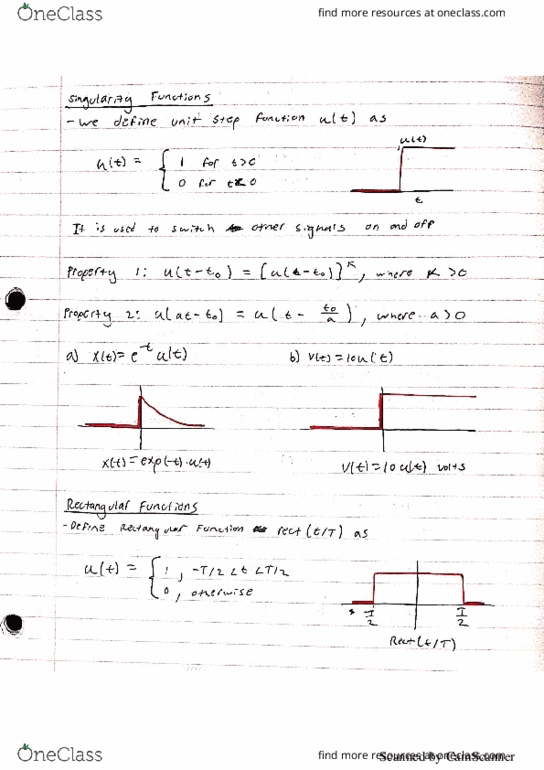 OneClass
find more resources at oneclass.com
Singularity Functions
- we define unit step function u(t) as
u(t) = { 1 for t>0
0 for t<0
u(t)
t
It is used to switch other signals on and off
Property 1: u(t-t₀) = [u(t-t₀)]ᴷ, where K >0
Property 2: u(at-t₀) = u(t - t₀/a), where a>0
a) x(t)= e⁻ᵗ u(t)
b) V(t) = 10u(t)
x(t) = exp(-t)·u(t)
V(t) = 10 u(t) volts
Rectangular Functions
- Define Rectangular Function rect(t/T) as
u(t) = { 1, -T/2 < t < T/2
0, otherwise
-T/2
T/2
Rect(t/T)
OneClass
find more resources at oneclass.com
Scanned by CamScanner